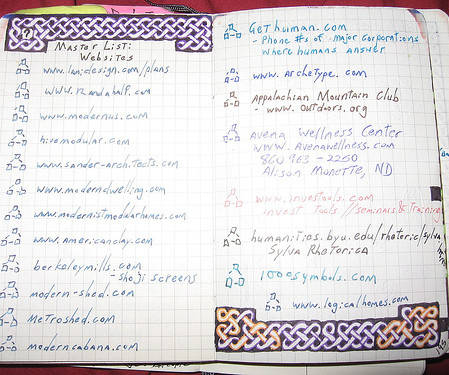 Master List:
Websites
www.lamidesign.com/plans
www.2andahalf.com
www.modernus.com
hivemodular.com
www.sander-architects.com
www.moderndwelling.com
www.modernistmodularhomes.com
www.americanclay.com
berkeleymills.com
-shoji screens
modern-shed.com
Metroshed.com
moderncabana.com
Gethuman.com
- Phone #s of major corporations
where humans answer
www.archetype.com
Appalachian Mountain Club
- www.outdoors.org
Avena Wellness Center
www.avenawellness.com
860 963-2250
Alison Monette, ND
www.investools.com
invest Tools // seminars & Training
humanities.byu.edu/rhetoric/sylva
Sylva Rhetorica
1000symbols.com
www.logicalhomes.com